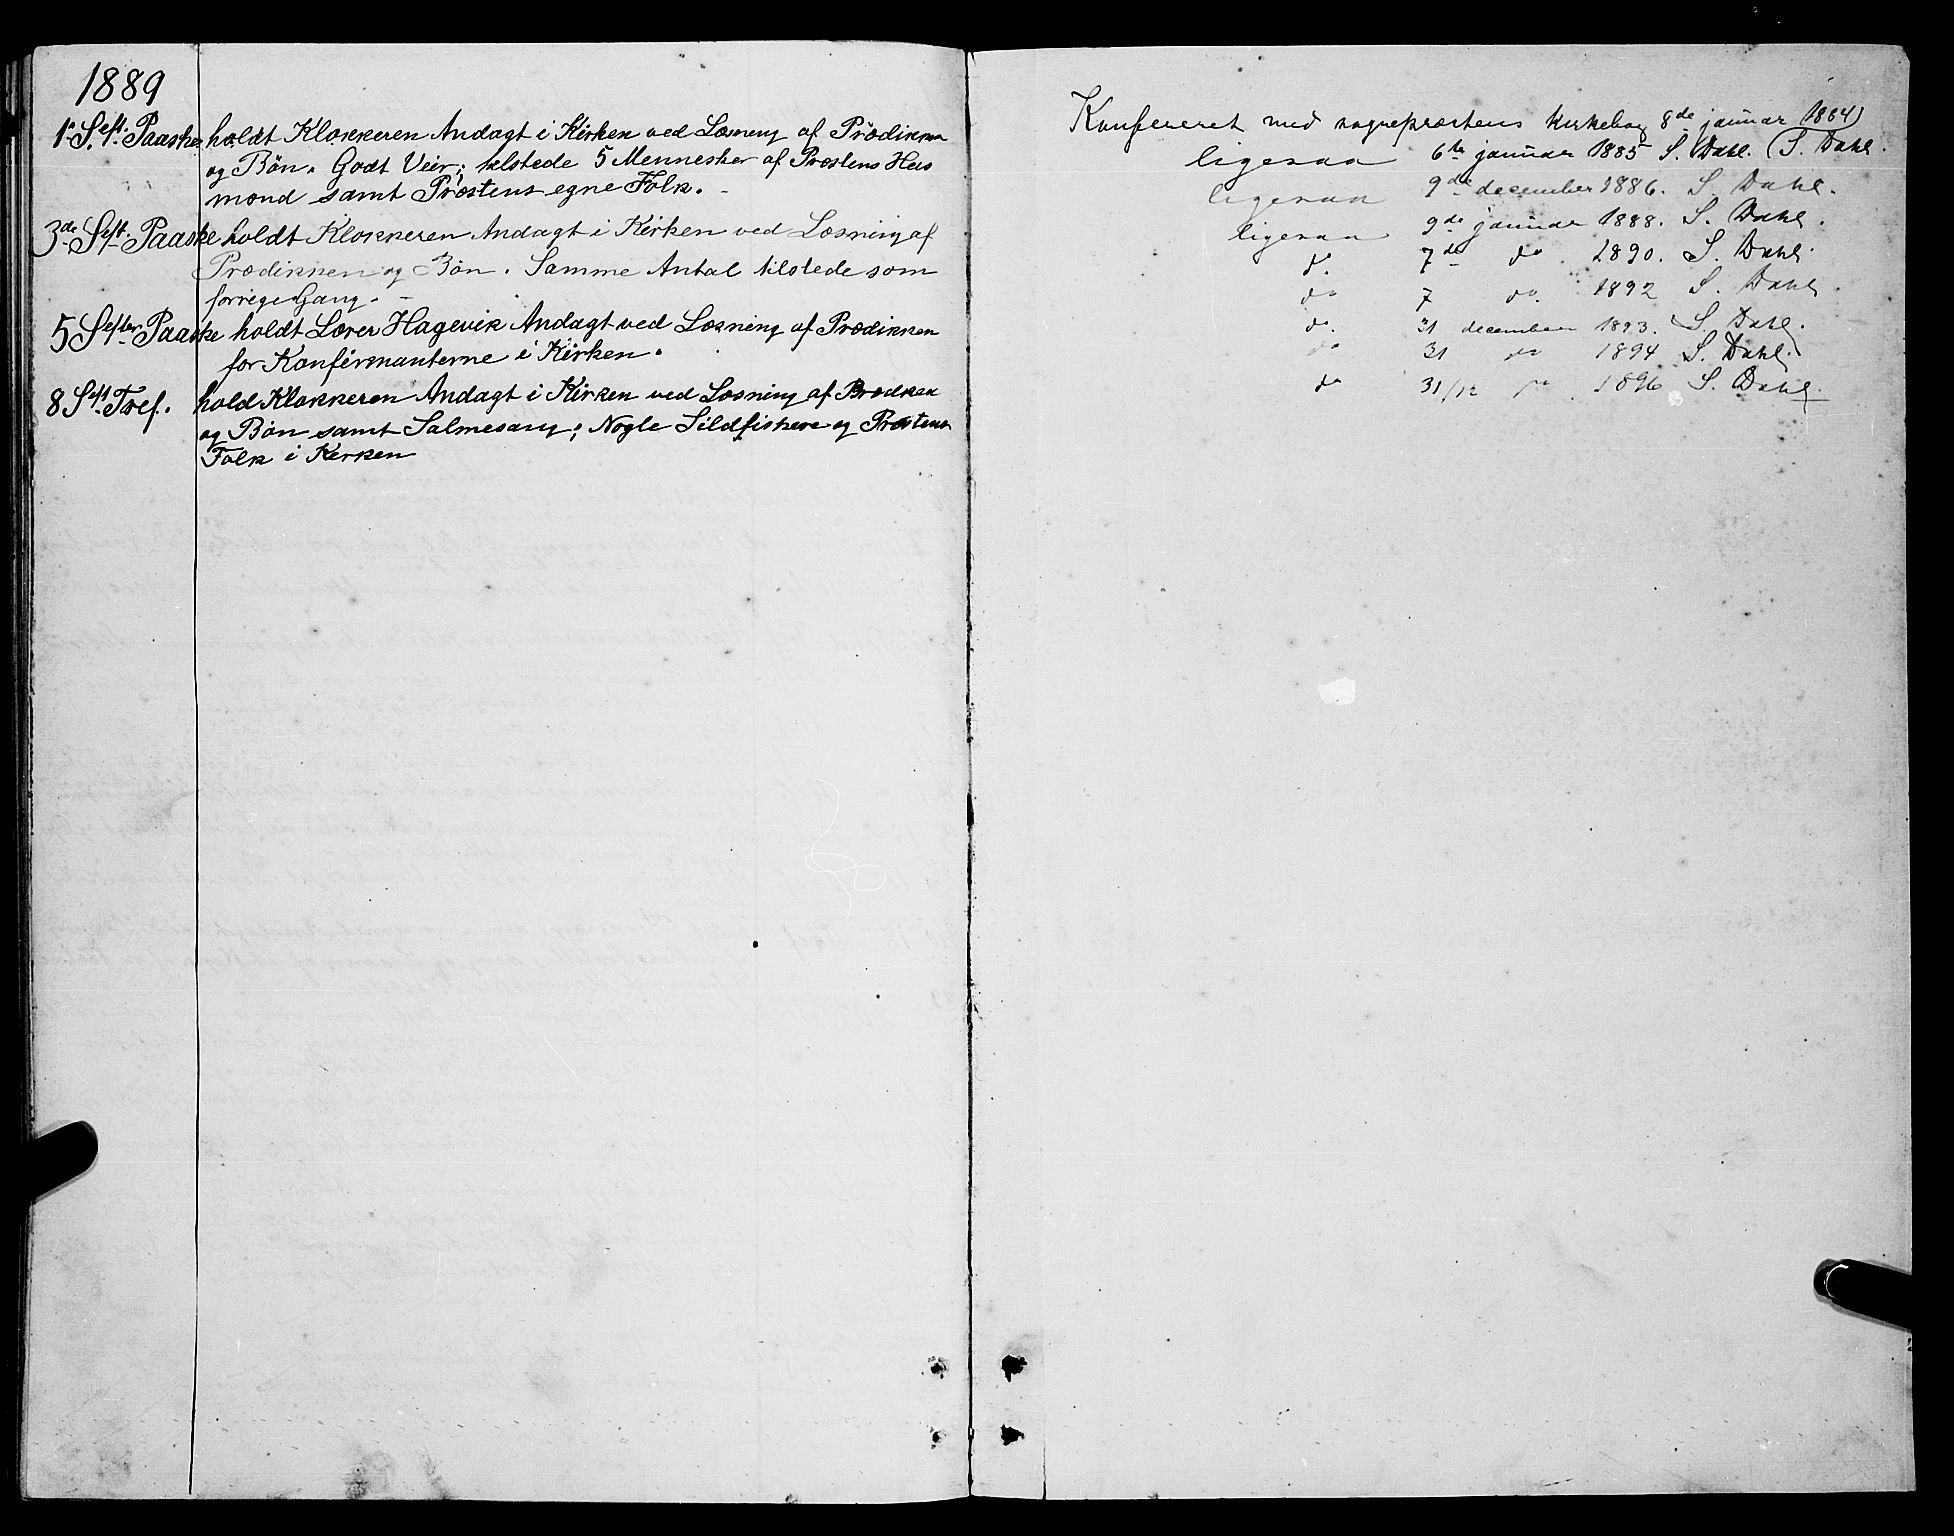 1889
1ste S. eft. Paaske holdt Klokkeren Andagt i Kirken ved Læsning af Prædiken
og Bön. Godt Veir; tilstede 5 Mennesker af Præstens Hus
mænd samt Præstens egne Folk.
3de S. eft. Paaske holdt Klokkeren Andagt i Kirken ved Læsning af
Prædikken og Bön. Samme Antal tilstede som
forrige Gang.
5 S efter Paaske holdt Lærer Hagevik Andagt ved Læsning af Prædikken
for Konfirmanterne i Kirken.
8 S eft Tref. hold Klokkeren Andagt i Kirken ved Læsning af Prædken
og Bön samt Salmesang; Nogle Sildfiskere og Præstens
Folk i Kirken
Konfereret med sognepræstens kirkebog 8de januar 1884
ligesaa 6te januar 1885 S. Dahl. (S. Dahl.
ligesaa 9de december 1886. S. Dahl.
ligesaa 9de januar 1888. S. Dahl.
do. 7de do 1890. S. Dahl.
do 7 do. 1892 S. Dahl.
do. 31 december 1893. S. Dahl.
do 31 do 1894 S. Dahl.
do 31/12 do 1896 S. Dahl.